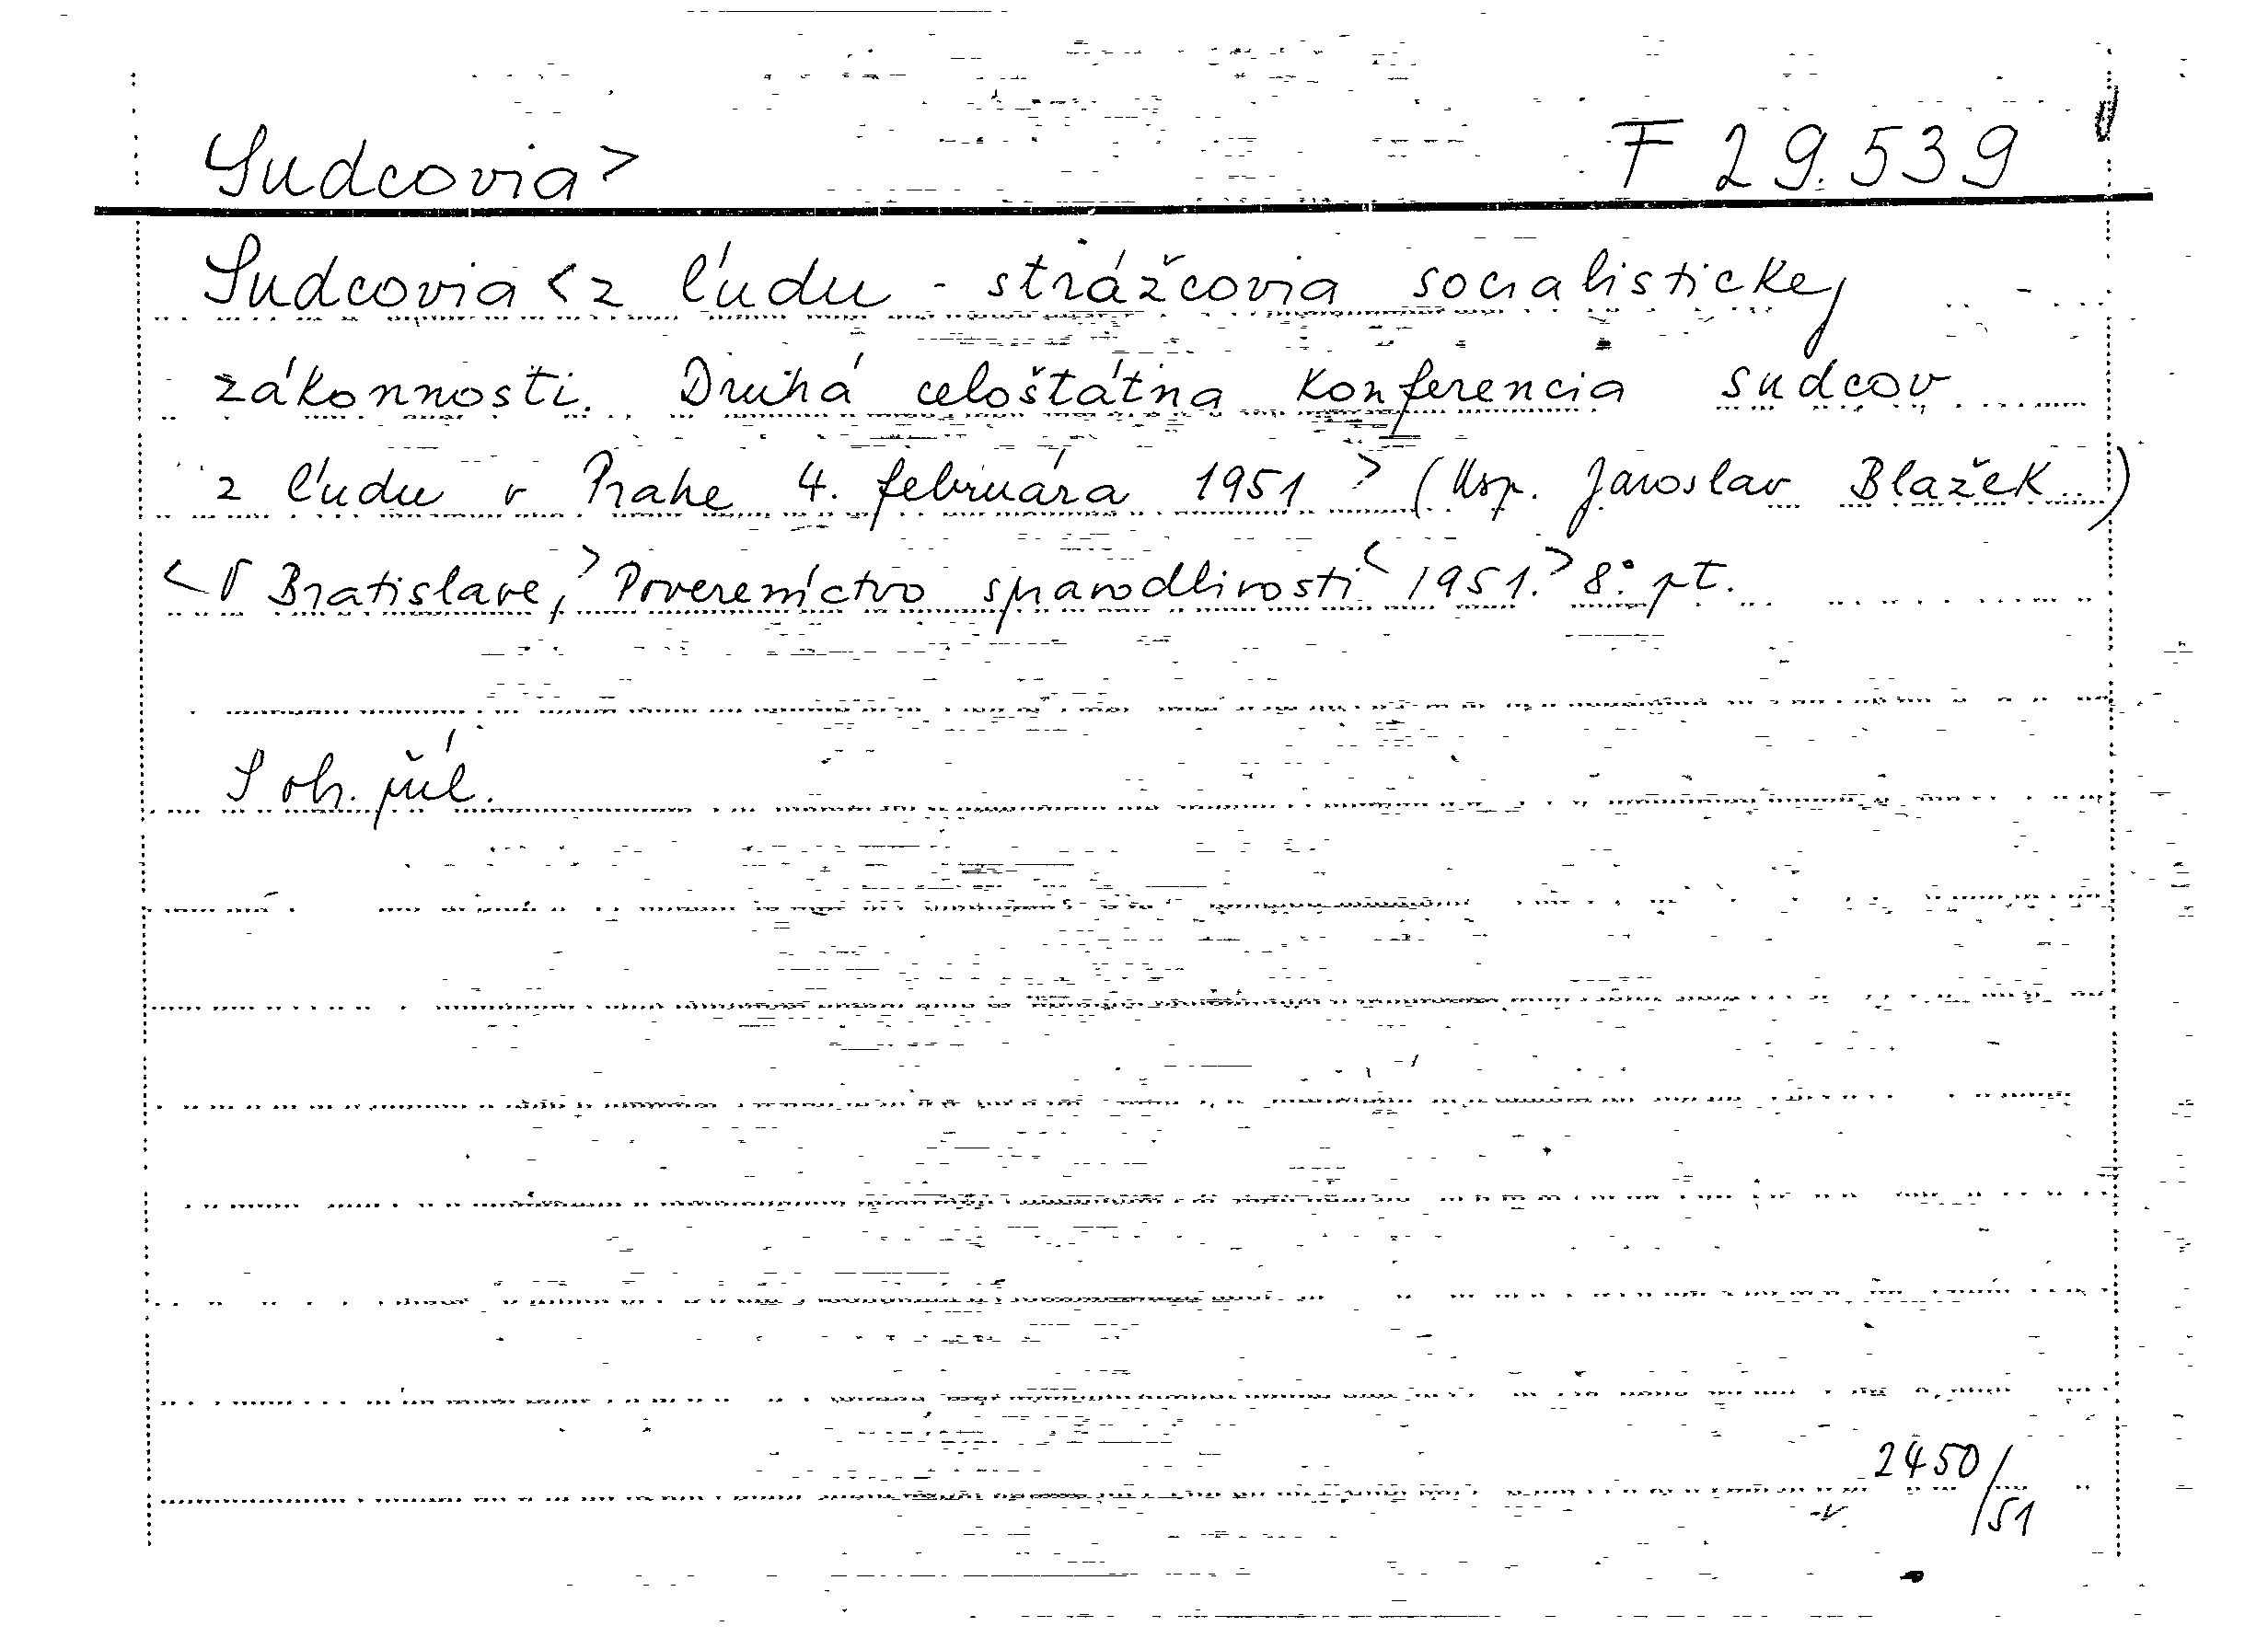 Sudcovia>
F 29.539
Sudcovia <z ľudu - strážcovia socialistickej
zákonnosti. Druhá celoštátna konferencia sudcov
z ľudu v Prahe 4. februára 1951> (Usp. Jaroslav Blažek.)
<V Bratislave,> Povereníctvo spravodlivosti< 1951.> 8° pt.
S ob. príl.
2450/51